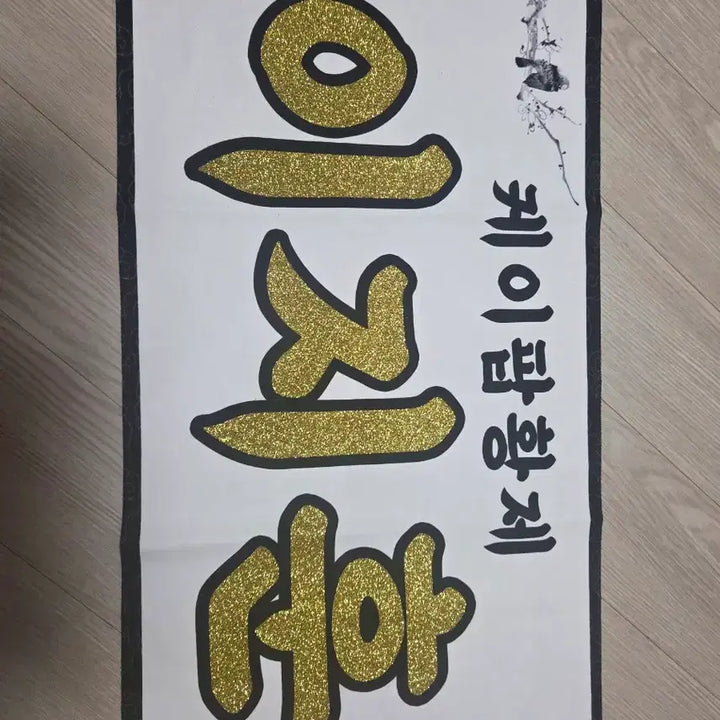 케이팝황제
이지훈